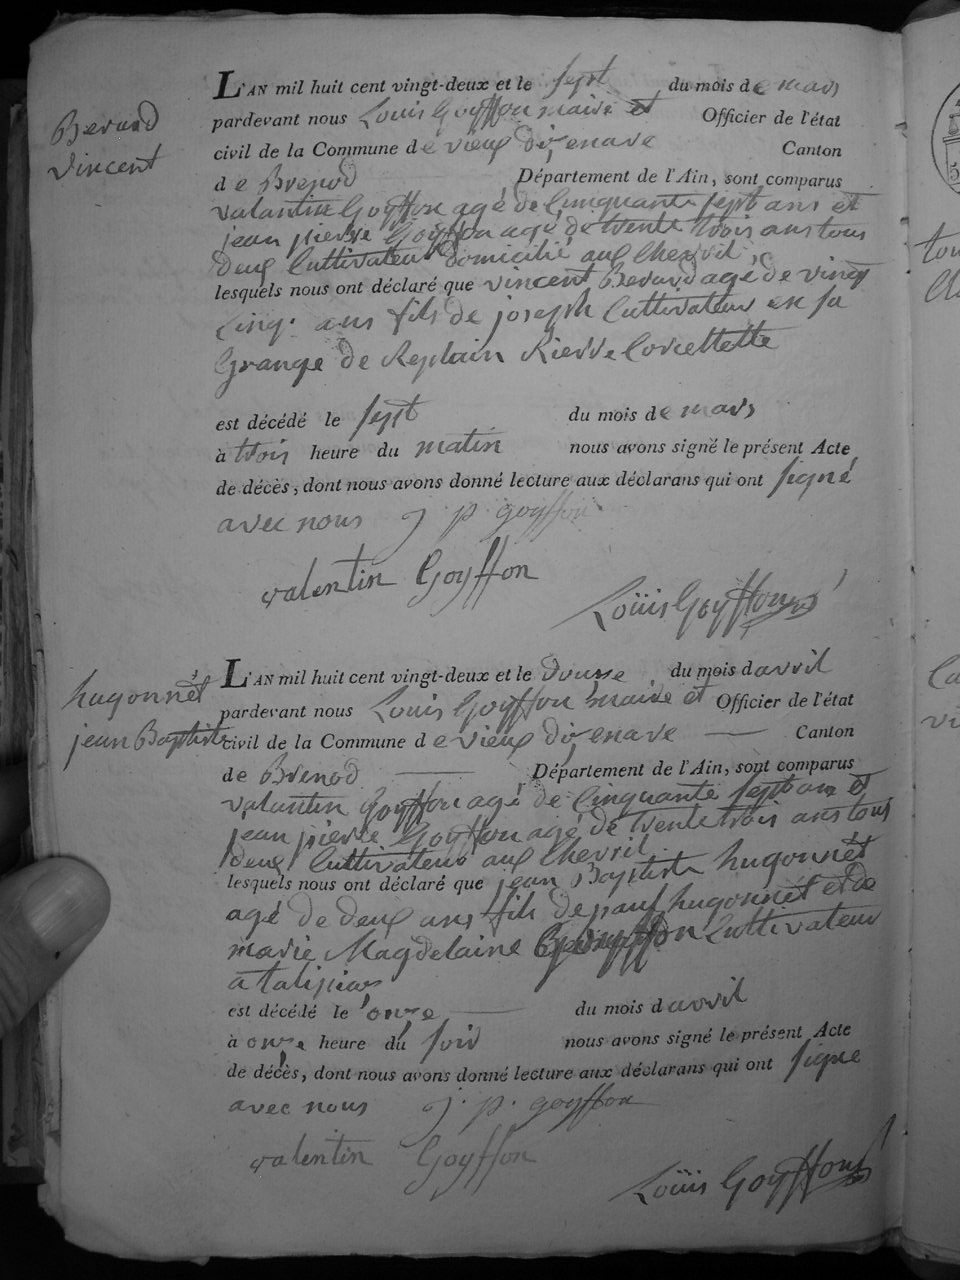 Berard
Vincent
L'AN mil huit cent vingt-deux et le sept du mois de mars
pardevant nous Louis Goyffon maire et Officier de l'état
civil de la Commune de vieux d'izenave Canton
de Brenod Département de l'Ain, sont comparus
valantin Goyffon agé de Cinquante sept ans et
jean pierre Goyffon agé de trente trois ans tous
deux Cultivateur domicilié aux Chevril
lesquels nous ont déclaré que vincent Berard agé de vingt
Cinq. ans fils de joseph Cultivateur en sa
Grange de Replain Rierre Corcellette
est décédé le sept du mois de mars
à trois heure du matin nous avons signé le présent Acte
de décès, dont nous avons donné lecture aux déclarans qui ont signé
avec nous j p. goyffon
valentin Goyffon
Loüis Goyffon
hugonnét
jean Baptiste
L'AN mil huit cent vingt-deux et le douzze du mois d avril
pardevant nous Louis Goyffon maire et Officier de l'état
civil de la Commune de vieux d'izenave Canton
de Brenod Département de l'Ain, sont comparus
valantin Goyffon agé de Cinquante sept ans et
jean pierre Goyffon agé de trente trois ans tous
deux Cultivateurs aux Chevril
lesquels nous ont déclaré que jean Baptiste hugonnét
agé de deux ans fils de paul hugonnét et de
marie Magdelaine Cultivateur
a talipiar
est décédé le onze du mois d avril
à onze heure du soir nous avons signé le présent Acte
de décès, dont nous avons donné lecture aux déclarans qui ont signe
avec nous j. p. goyffon
valentin Goyffon
Loüis Goyffon